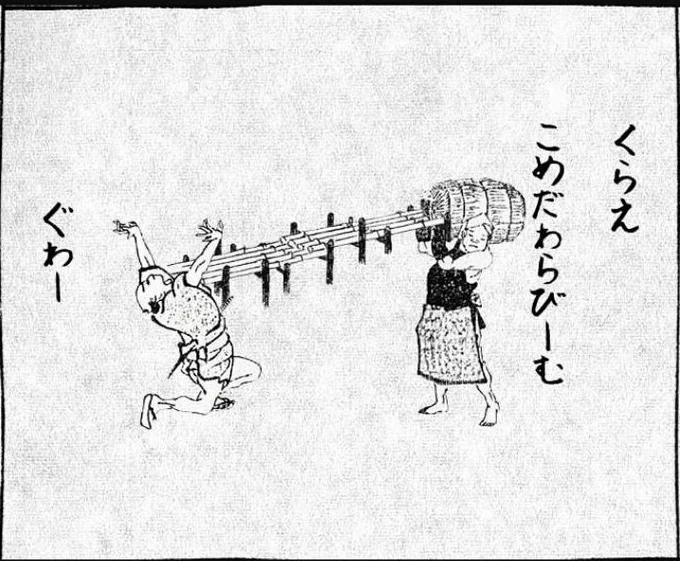 くらえ
こめだわらびーむ
ぐわー